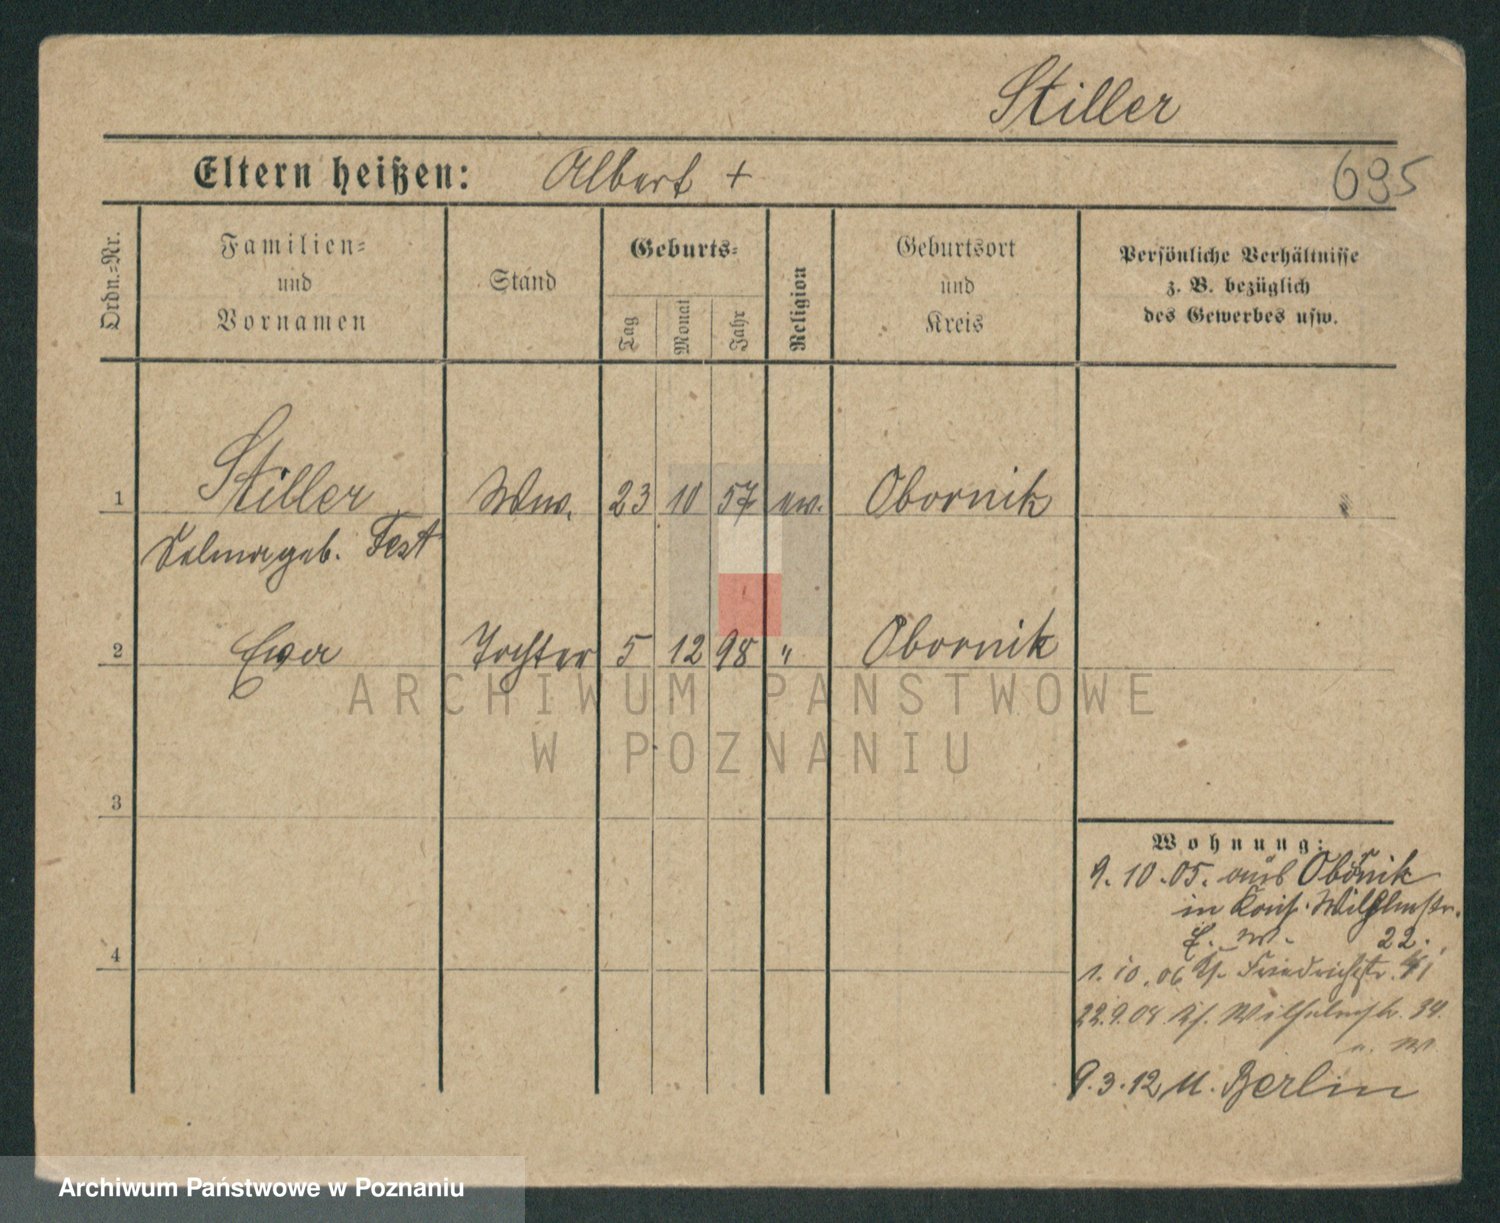 Stiller
Eltern heißen: Albert +
695
Ordn.-Nr.
Familien-
und
Vornamen
Stand
Geburts-
Tag
Monat
Jahr
Religion
Geburtsort
und
Kreis
Persönliche Verhältnisse
z. B. bezüglich
des Gewerbes usw.
1 Stiller Ww. 23 10 57 ev. Obornik
Selma geb. Fest
2 Ewa Tochter 5 12 98 " Obornik
ARCHIWUM PAŃSTWOWE
W POZNANIU
3
4
Wohnung:
9.10.05. aus Obornik
in Wilhelmstr.
E. W. 22.
1.10.06 Friedrichstr. 41
22.9.08 Wilhelmstr. 34.
9.3.12 Berlin
Archiwum Państwowe w Poznaniu